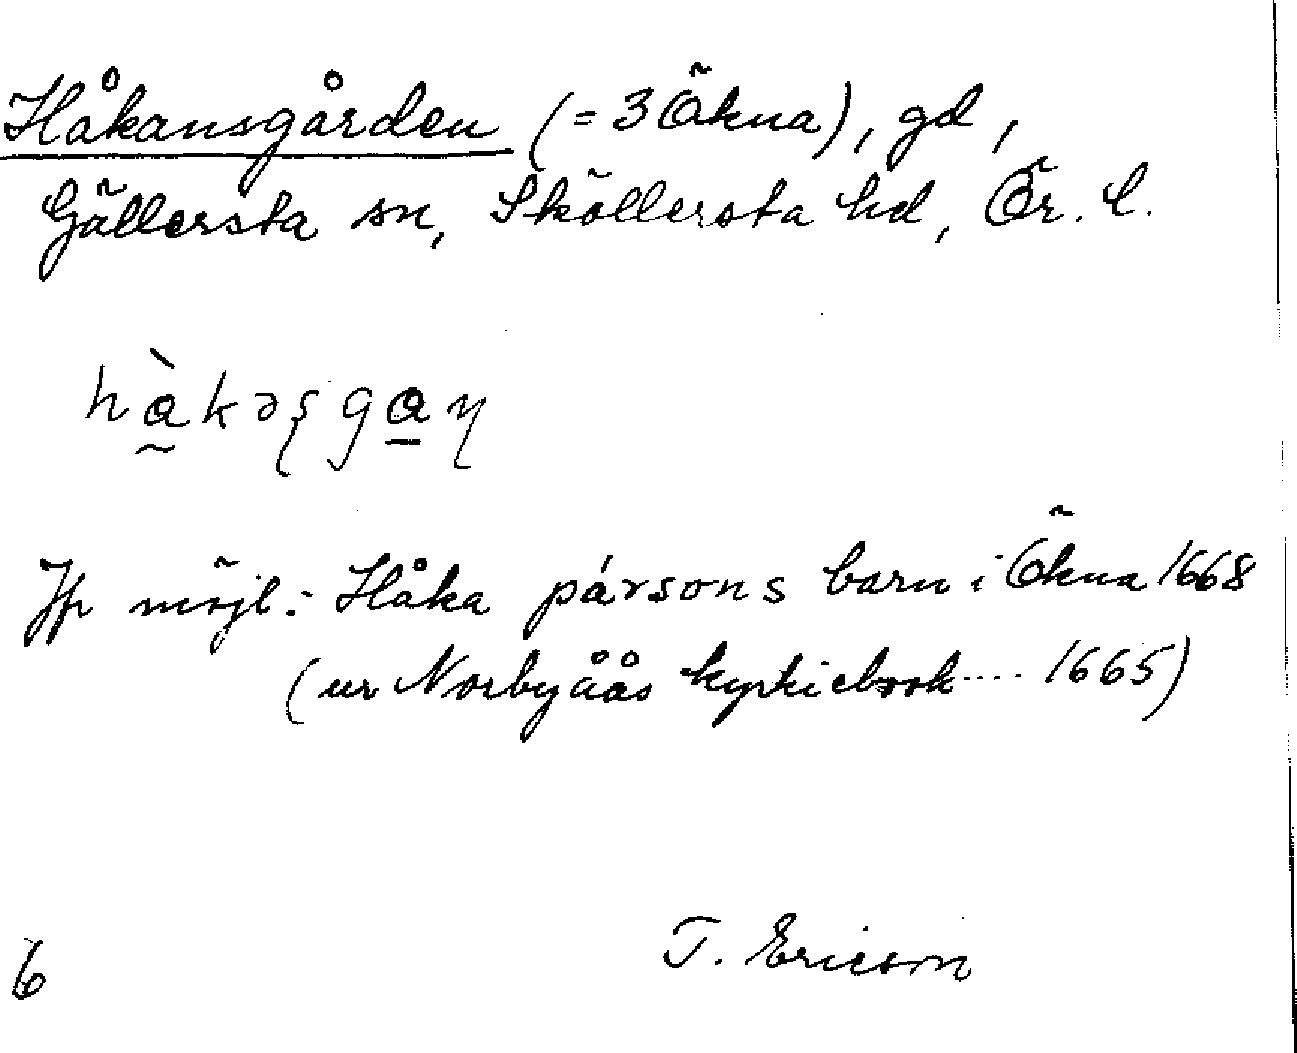 Håkansgården (= 3 Ökna), gd,
Gällersta sn, Sköllersta hd, Ör. l.
Jfr möjl.: Håka pársons barn i Ökna 1668
(ur Norbyåås kyrkiebook.... 1665)
T. Ericson
6